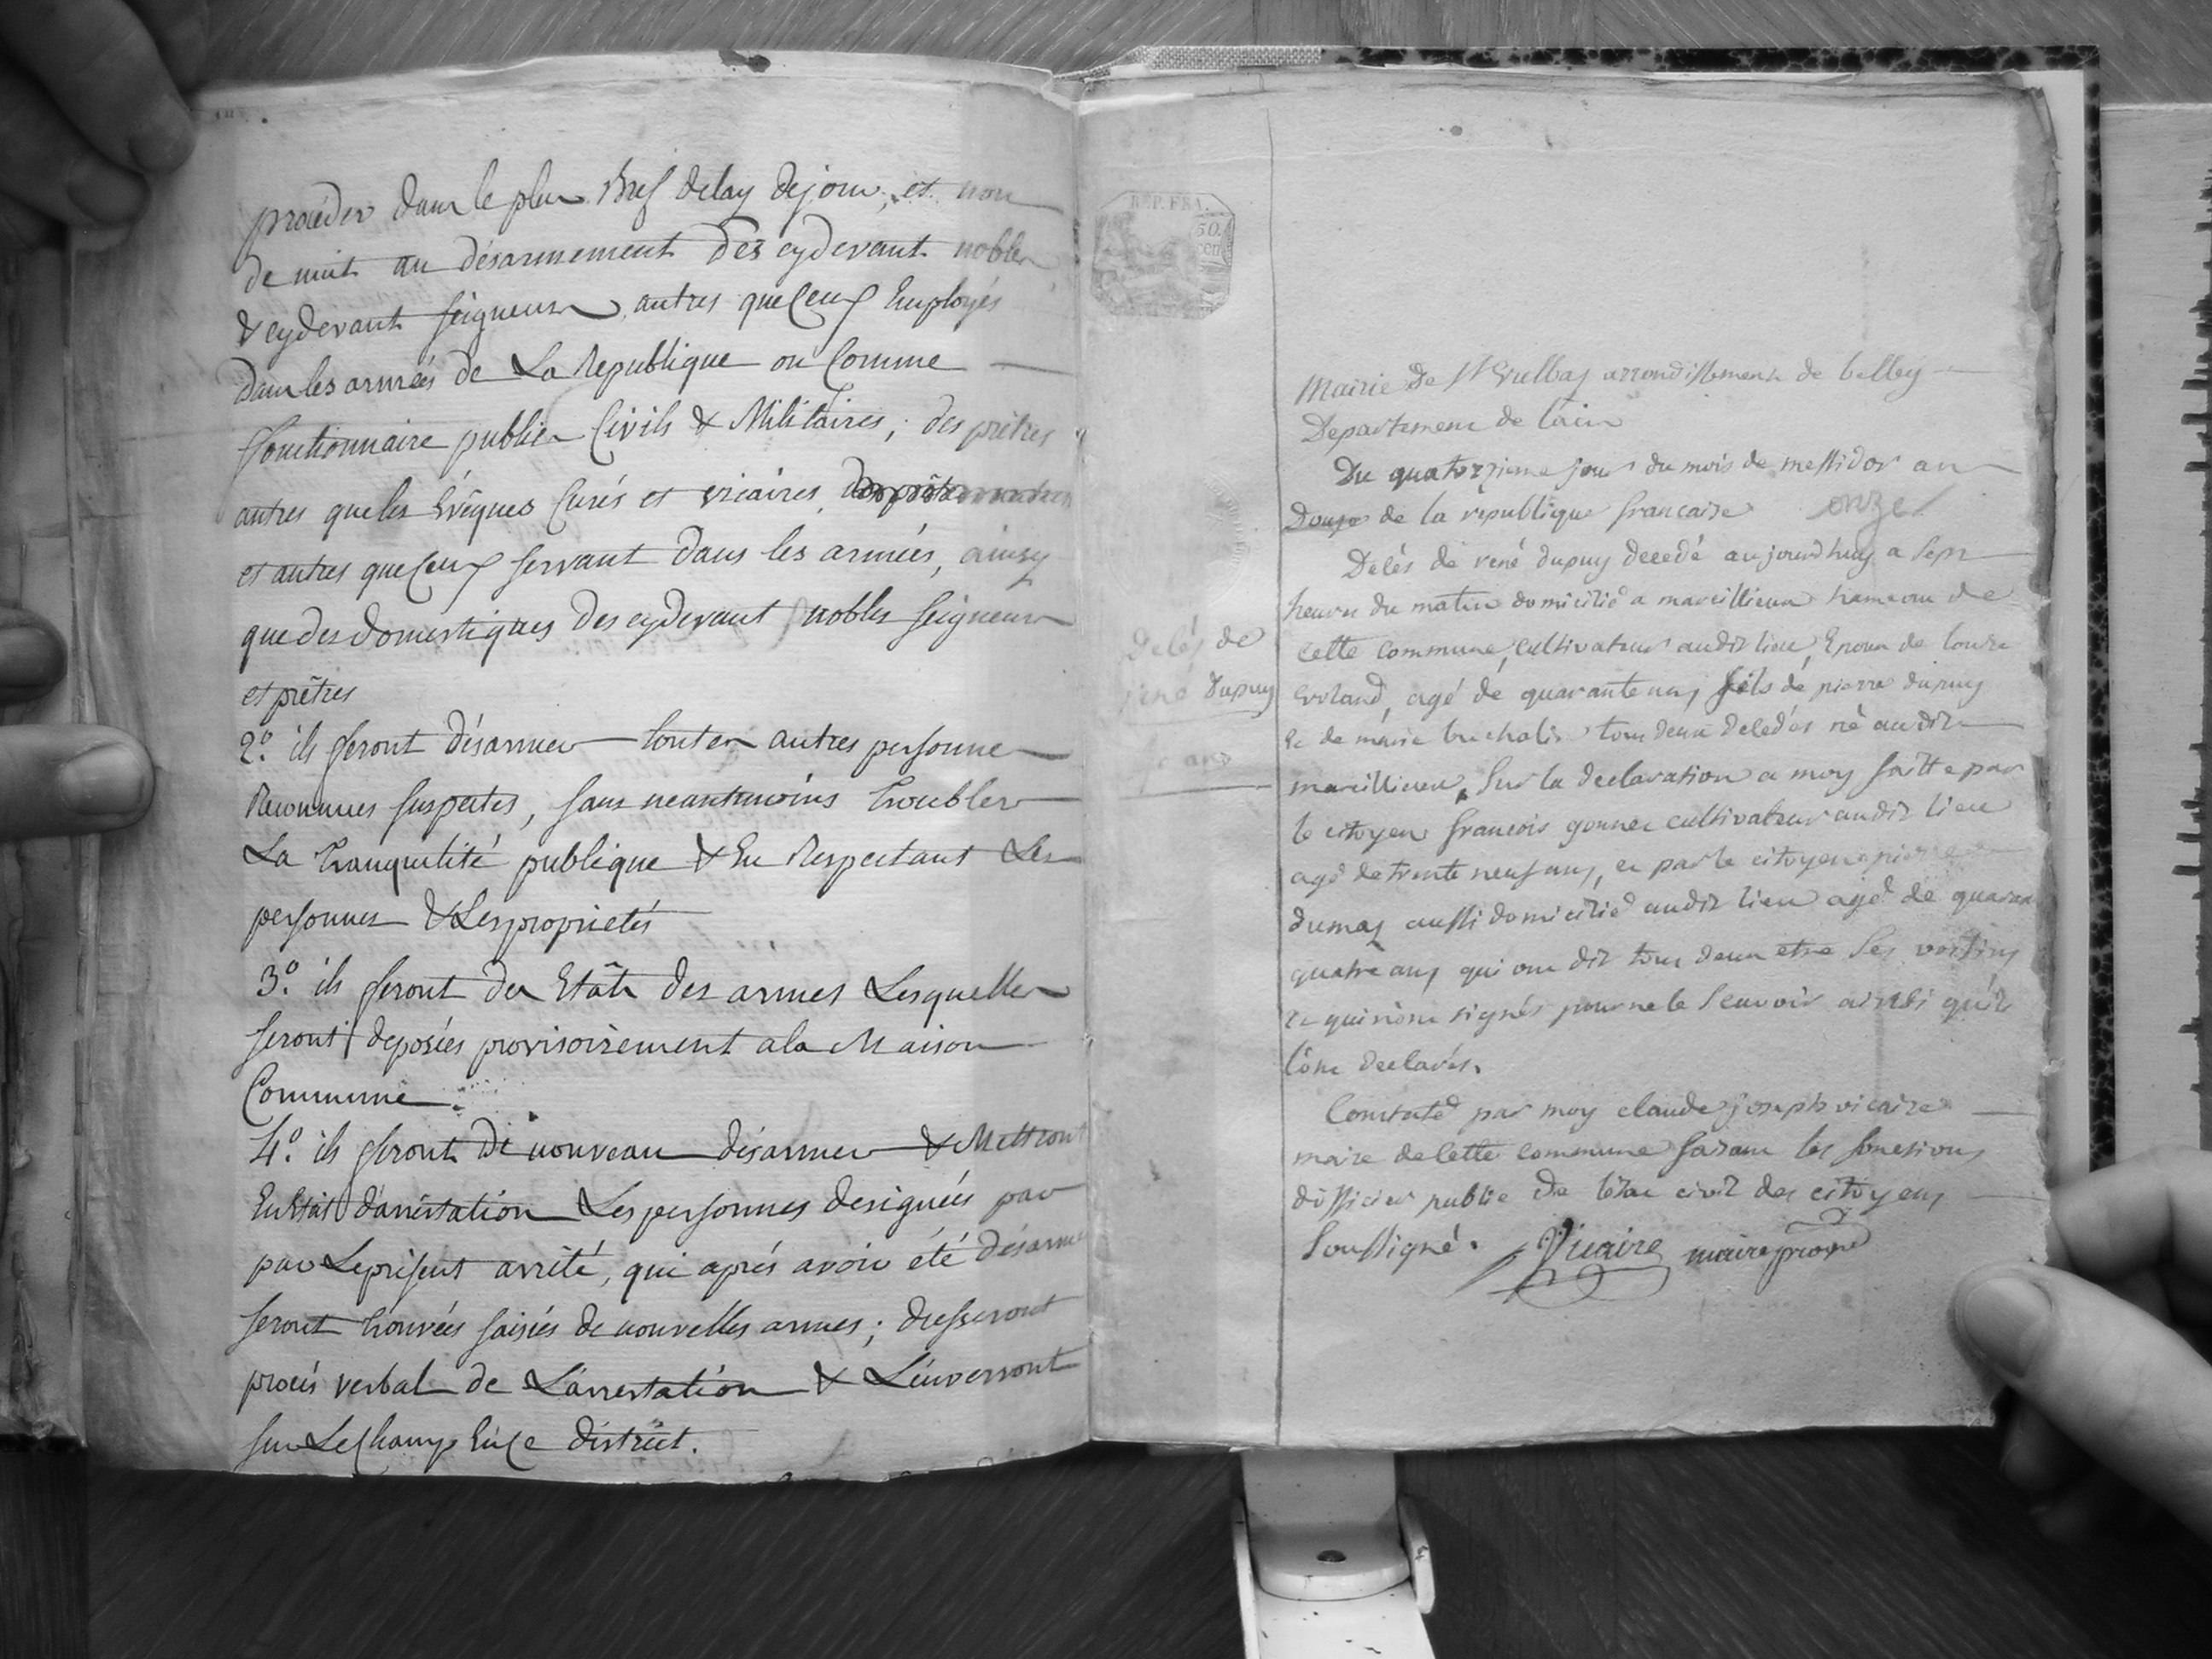 procéder dans le plus Bref delay de jour, et non
de nuit au désarmement des cydevant nobles
& cydevant seigneurs, autres que ceux Employés
dans les armées de La Republique ou Comme
fonctionnaire publics Civils & Militaires; des prêtres
autres que les évêques Curés et vicaires,
et autres que ceux servant dans les armées, ainsy
que des domestiques des cydevant nobles seigneurs
et prêtres
2.º ils feront désarmer toutes autres personnes
Reconnues suspectes, sans neantmoins troubler
La tranquilité publique & En Respectant Les
personnes & Les proprietés
3.º ils feront des Etats des armes Lesquelles
seront deposées provisoirement a la Maison
Commune.
4.º ils feront de nouveau désarmer & Mettront
En Etat d'arrestation Les personnes designées par
par Le présent arrêté, qui aprés avoir été désarmé
seront trouvées saisies de nouvelles armes; dresseront
procés verbal de L'arrestation & L'enverront
sur Le Champ En ce district.
REP. FRA.
50.
cen
Mairie de St Vulbas arrondissement de belley
Departement de lain
Du quatorzieme jour du mois de messidor an
Douze de la république francaise onze
Delès de
rené Dupuy
Decès de rené dupuy decedé aujourdhuy a sept
heures du matin domicilié a marcillieux hameau de
cette commune, cultivateur audit lieu, Epoux de louise
, agé de quarante ans fils de pierre dupuy
et de marie tous deux decedés né audit
marcillieux, sur la declaration a moy faitte par
le citoyen francois gonnet cultivateur audit lieu
agé de trente neuf ans, et par le citoyen pierre
dumas aussi domicilié audit lieu agé de quarante
quatre ans qui ont dit tous deux etre ses voisins
et qui n'ont signés pour ne le scavoir ainsi qu'ils
l'ont declarés.
Constaté par moy claude joseph vicaire
maire de cette commune faisant les fonctions
d'officier public de l'état civil des citoyens
soussigné. Vicaire maire prové